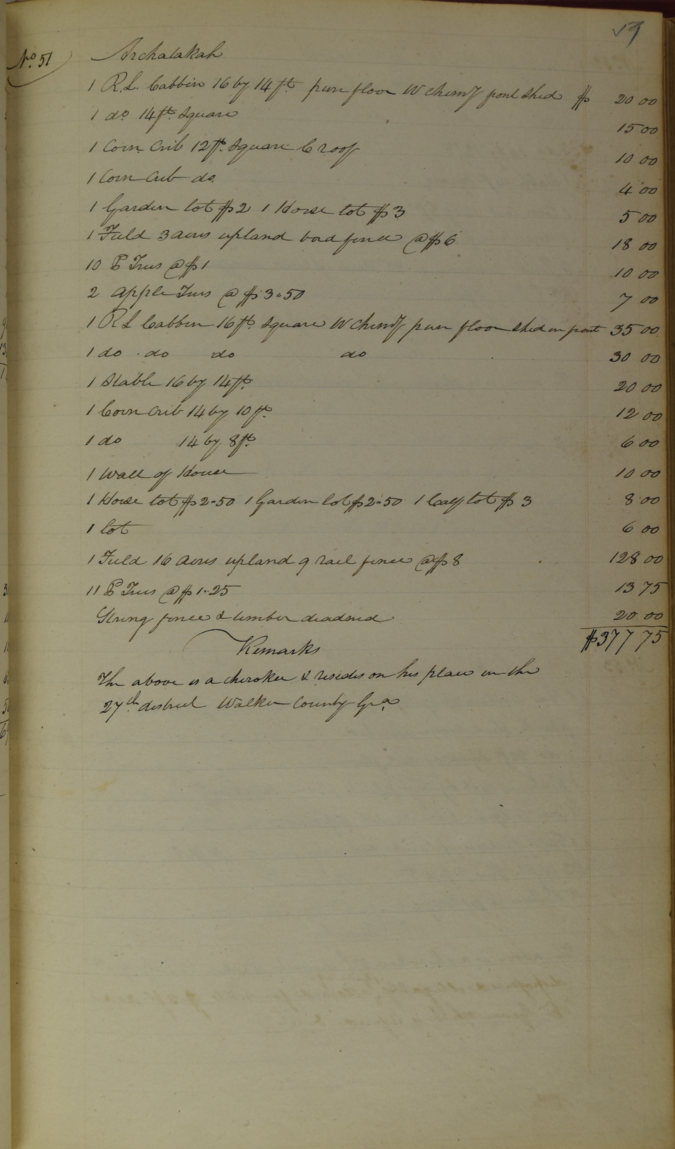 59
No. 51 Archalakah
1 R.L Cabbin 16 by 14ft punn floor W chimy pont shed $ 20 00
1 do 14ft Square 15 00
1 Corn Crib 12ft Square C roof 10 00
1 Corn Crib do 4 00
1 Garden lot $2 1 Horse lot $3 5 00
1 Field 3 acres upland bad fence @ $6 18 00
10 P Trees @ $1 10 00
2 Apple Trees @ $3.50 7 00
1 R.L Cabbin 16ft Square W chimy punn floor shed in pont 35 00
1 do do do do 30 00
1 Stable 16 by 14ft 20 00
1 Corn Crib 14 by 10ft 12 00
1 do 14 by 8ft 6 00
1 Wall of House 10 00
1 Horse lot $2.50 1 Garden lot $2.50 1 Calf lot $3 8 00
1 lot 6 00
1 Field 16 acres upland 9 rail fence @ $8 128 00
11 P Trees @ $1.25 13 75
String fence & timber deadned 20 00
$377 75
Remarks
The above is a cherokee & resides on his place in the
27th district Walker County Ga